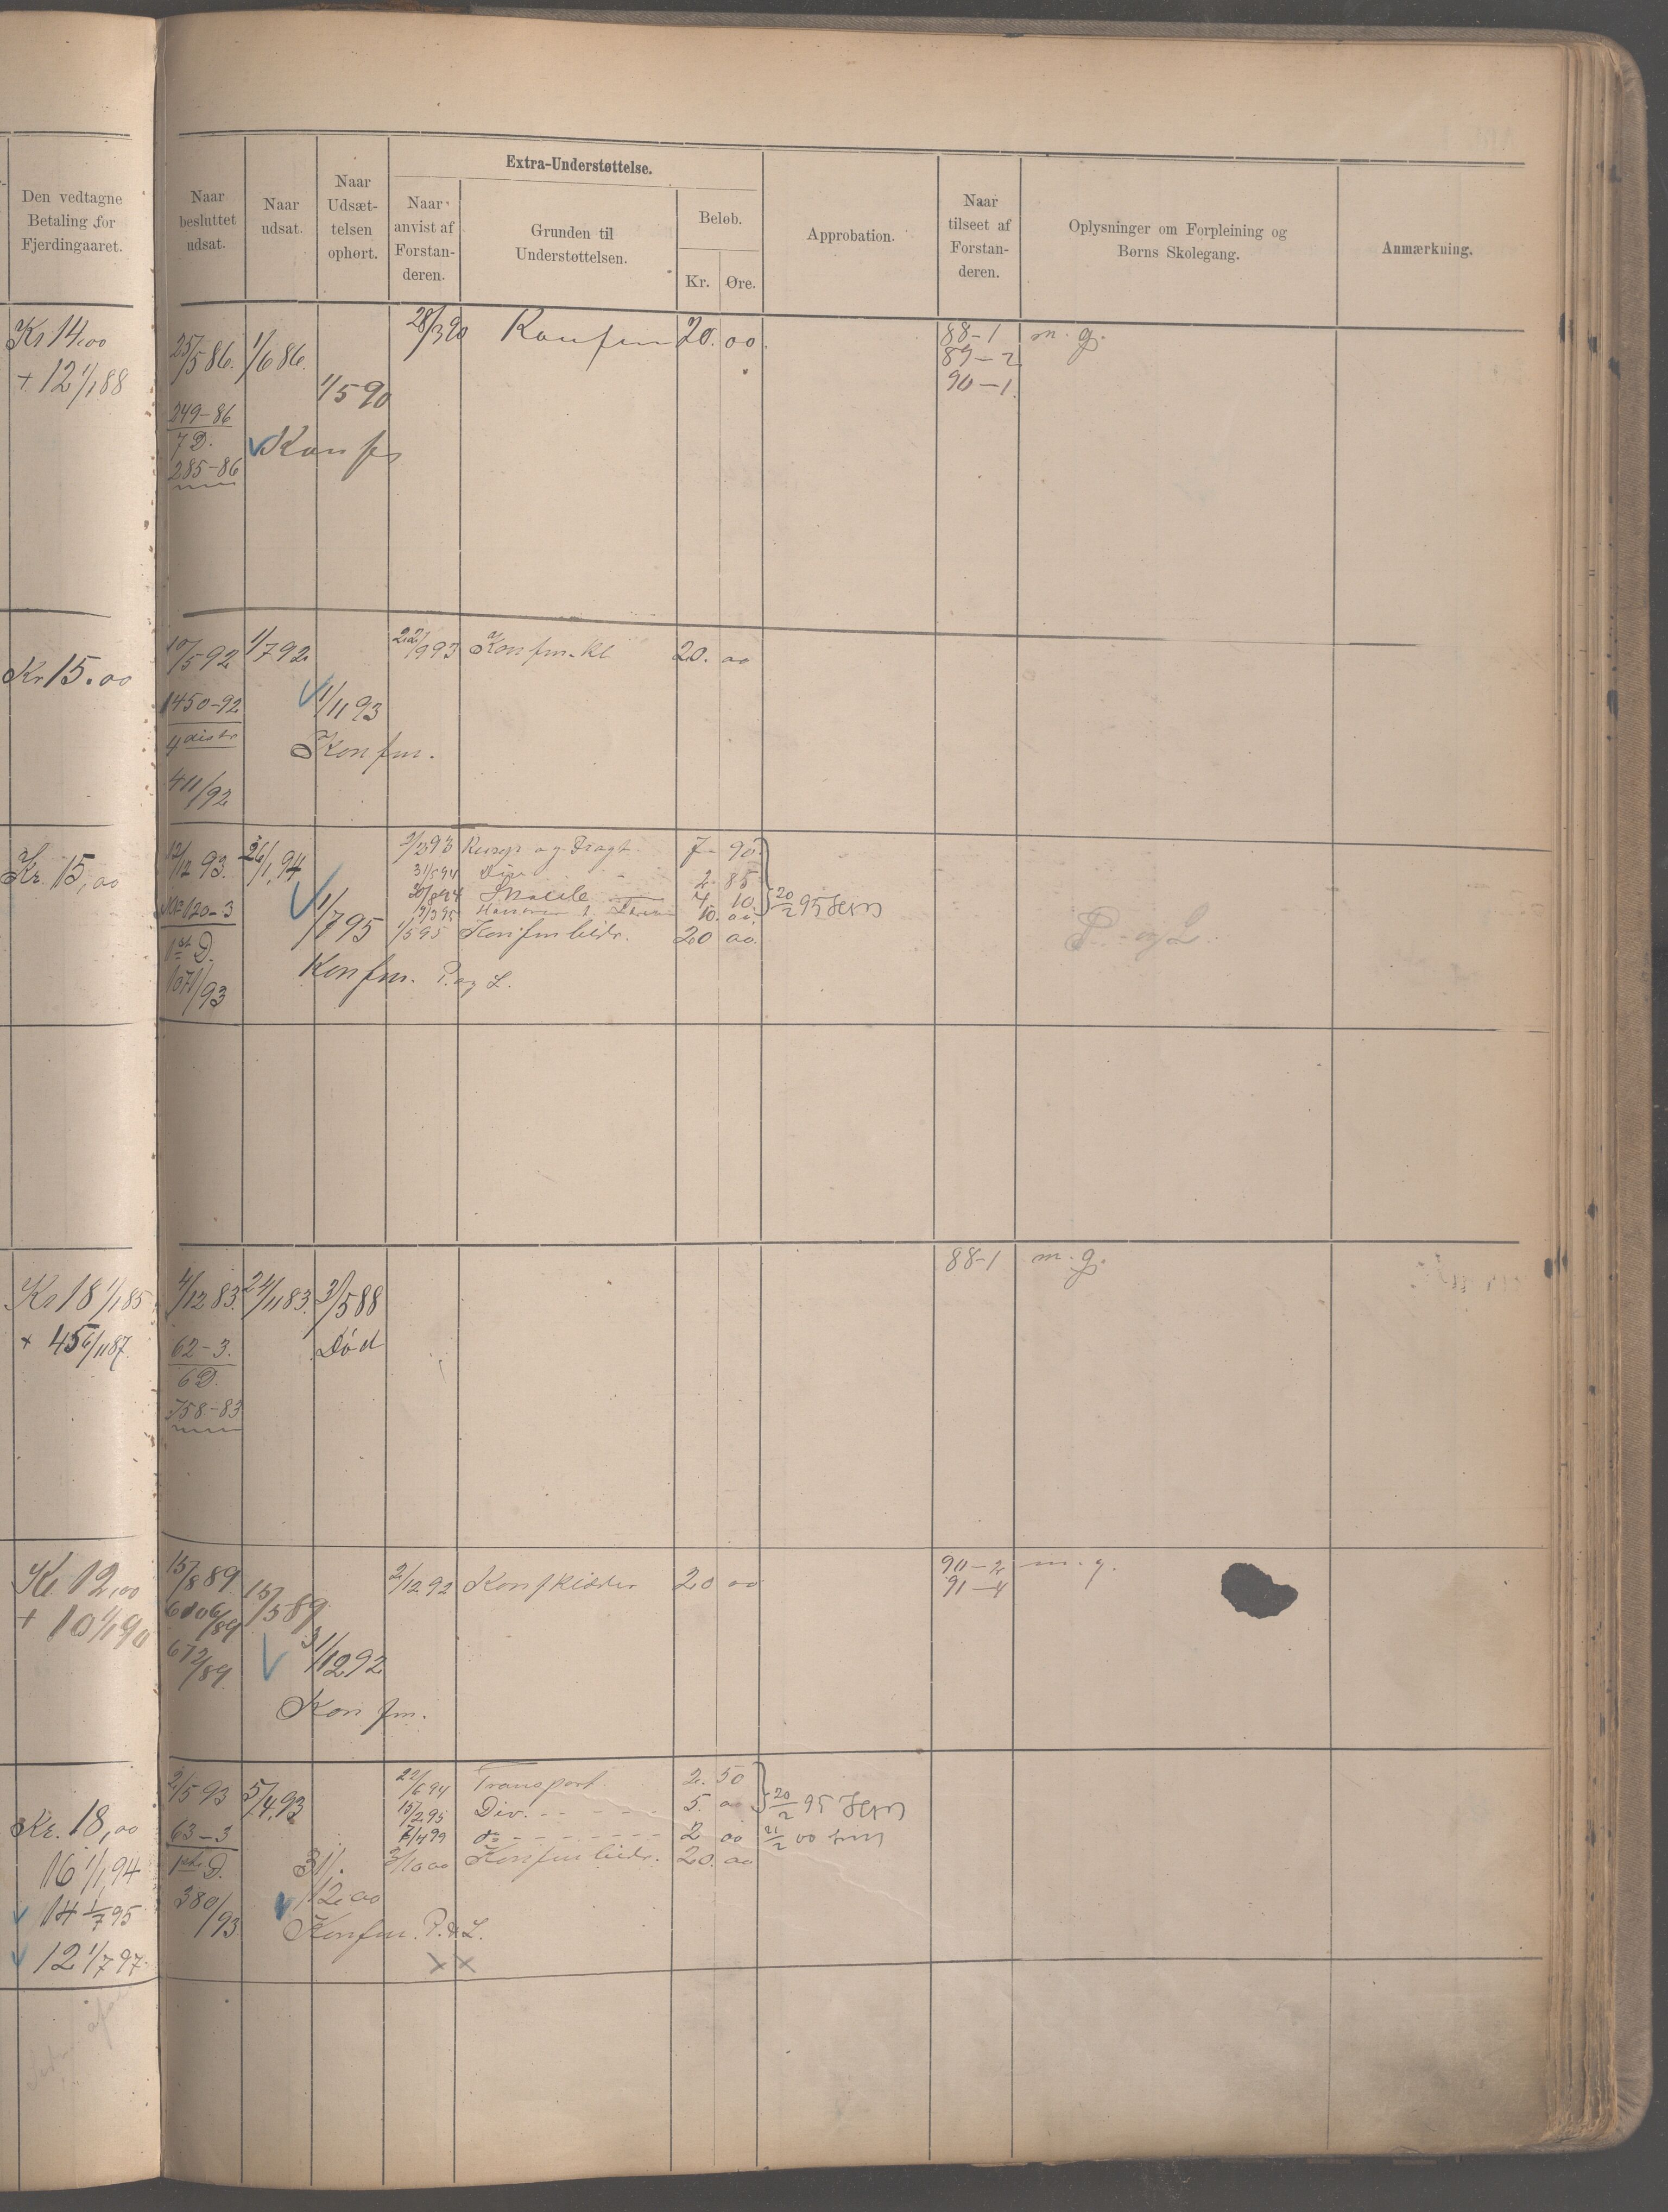 Den vedtagne
Betaling for
Fjerdingaaret.
Naar
besluttet
udsat.
Naar
udsat.
Naar
Udsæt-
telsen
ophørt.
Extra-Understøttelse.
Naar
anvist af
Forstan-
deren.
Grunden til
Understøttelsen.
Beløb.
Kr. Øre.
Approbation.
Naar
tilseet af
Forstan-
deren.
Oplysninger om Forpleining og
Børns Skolegang.
Anmærkning.
Kr 14,00
+ 12 1/1 88
25/5 86. 1/6 86.
1/5 90
249-86
7 D.
285-86
Konf
28/3 90 20. 00.
88-1 m. g.
89-2
90-1.
Kr 15.00
10/5 92 1/7 92
1450-92
4 distr
411/92
1/11 93
Konfm.
22/9 93 Konfm. Kl 20. 00
Kr. 15,00
12/12 93. 26/1 94
120-3
1st D.
1071/93
1/7 95
Konfm. P. og L.
og Fragt. 7 90
31/5 94 Div 2. 85
4 10
10. 00
1/5 95 Konfmbidr. 20 00.
20/2 95
P. og L
Kr 18 1/1 85
+ 45 6/11 87
4/12 83. 24/11 83. 3/5 88
Død
62-3.
6 D.
758-83
88-1 m. g.
Kr. 12,00
+ 10 1/1 90
15/8 89
15/5 89
672/89
31/12 92
Konfm.
2/12 92 20 00
90-2 m. g.
91-4
Kr. 18,00
16 1/1 94
14 1/7 95
12 1/7 97
2/5 93 5/4 93
63-3
1ste D.
380/93
31/12 00
Konfm. P. & L.
22/6 94 Transport 2. 50
15/2 95 Div. - - - - 5. 00
7/4 99 do - - - - 2 00
2/10 00 Konfmbidr. 20. 00
20/2 95
21/2 00